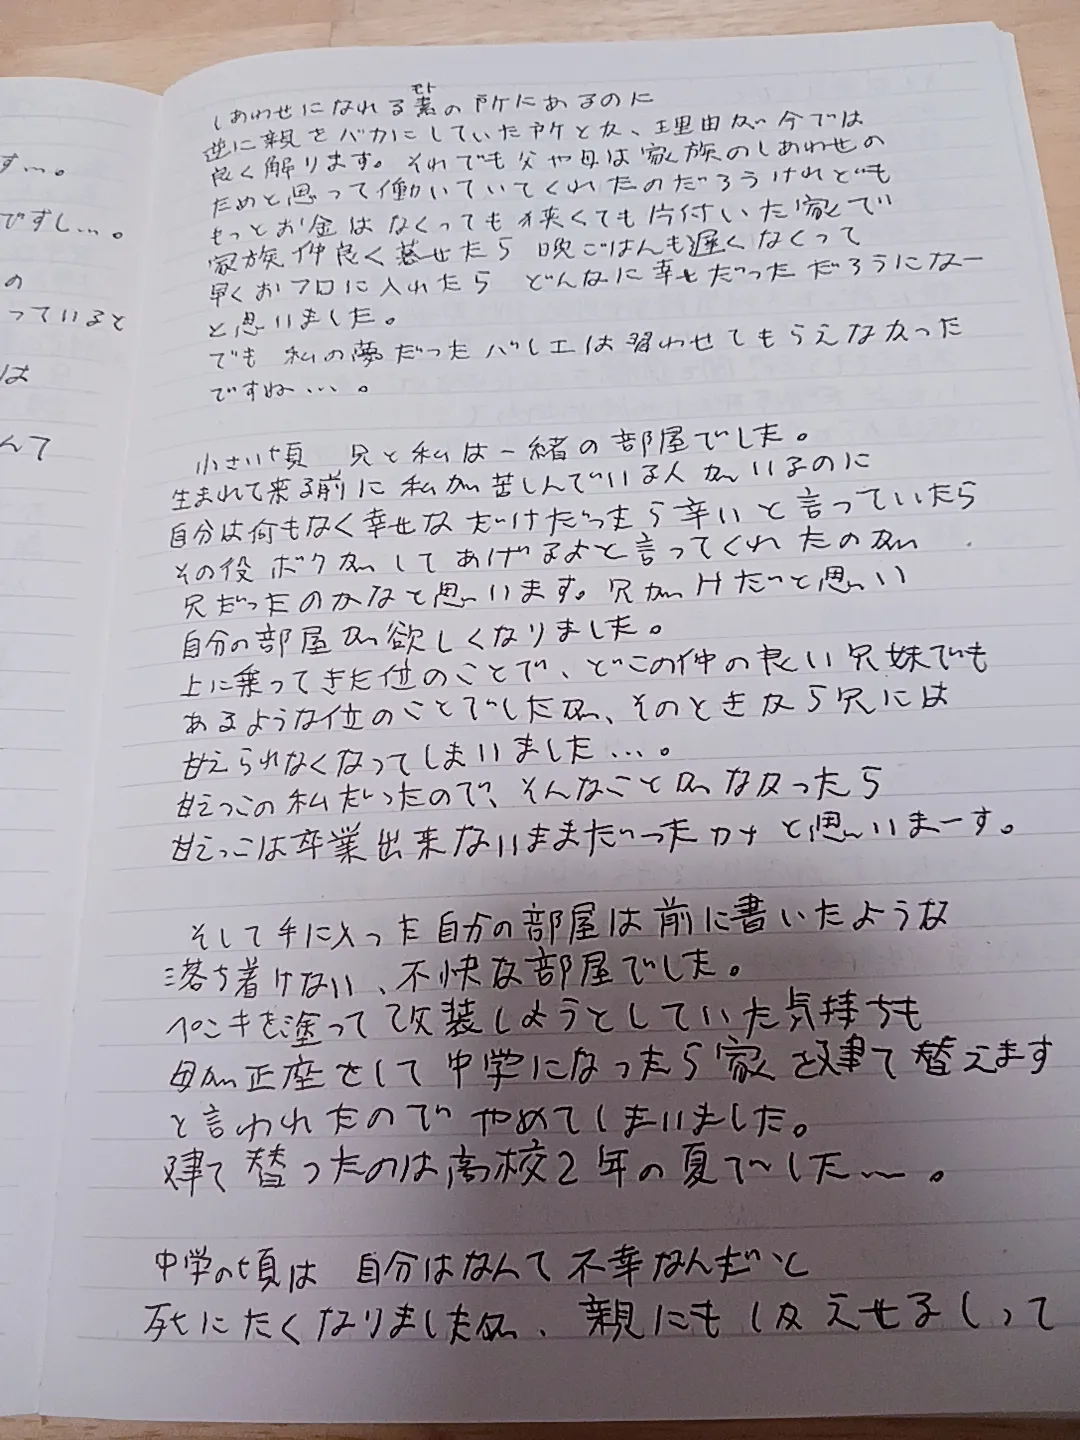 す…。
ですし…。
の
っていると
は
んて
しあわせになれる素の所にあるのに
モト
逆に親をバカにしていた所とか、理由が今では
良く解ります。それでも父や母は家族のしあわせの
ためと思って働いていてくれたのだろうけれども
もっとお金はなくっても狭くても片付いた家で
家族仲良く暮せたら 晩ごはんも遅くなくって
早くおフロに入れたら どんなに幸せだっただろうになー
と思いました。
でも 私の夢だったバレエは習わせてもらえなかった
ですね…。
小さい頃 兄と私は一緒の部屋でした。
生まれて来る前に 私が苦しんでいる人がいるのに
自分は何もなく幸せなだけだったら辛いと言っていたら
その役ボクがしてあげるよと言ってくれたのが
兄だったのかなと思います。兄がけだいと思い
自分の部屋が欲しくなりました。
上に乗ってきた位のことで、どこの仲の良い兄妹でも
あるような位のことでしたが、そのときから兄には
甘えられなくなってしまいました…。
甘えっこの私だったので、そんなことがなかったら
甘えっこは卒業出来ないままだったカナと思いまーす。
そして手に入った自分の部屋は前に書いたような
落ち着けない、不快な部屋でした。
ペンキを塗って改装しようとしていた気持ちも
母が正座をして中学になったら家を建て替えます
と言われたのでやめてしまいました。
建て替ったのは高校2年の夏で〜した〜。
中学の頃は 自分はなんて不幸なんだと
死にたくなりましたが、親にもしかえせるしって